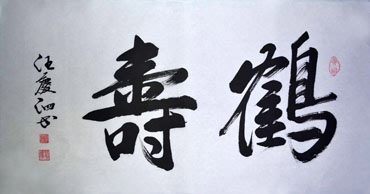 鶴壽
汪慶泗书